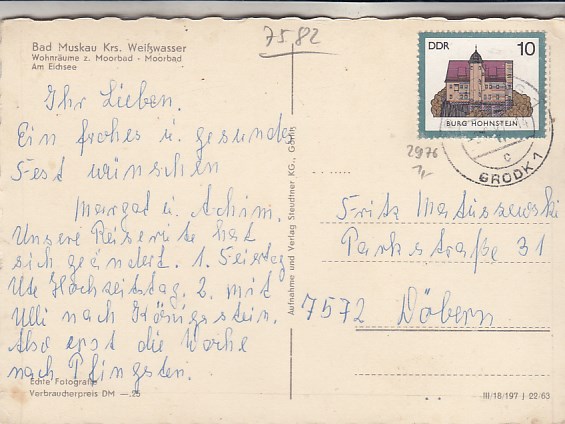 Bad Muskau Krs. Weißwasser
Wohnräume z. Moorbad - Moorbad
Am Eichsee
75,82
DDR 10
BURG HOHNSTEIN
2976
c
GRODK 1
Ihr Lieben.
Ein frohes u. gesundes
Fest wünschen
Margot u. Achim.
Unsere Reiseroute hat
sich geändert. 1. Feiertag
Ute Hochzeitstag, 2. mit
Ulli nach Königstein.
Also erst die Woche
nach Pfingsten.
Echte Fotografie
Verbraucherpreis DM —.25
Aufnahme und Verlag Steudtner KG., Görlitz
Fritz Matuszewski
Parkstraße 31
7572 Döbern
III/18/197 J 22/63